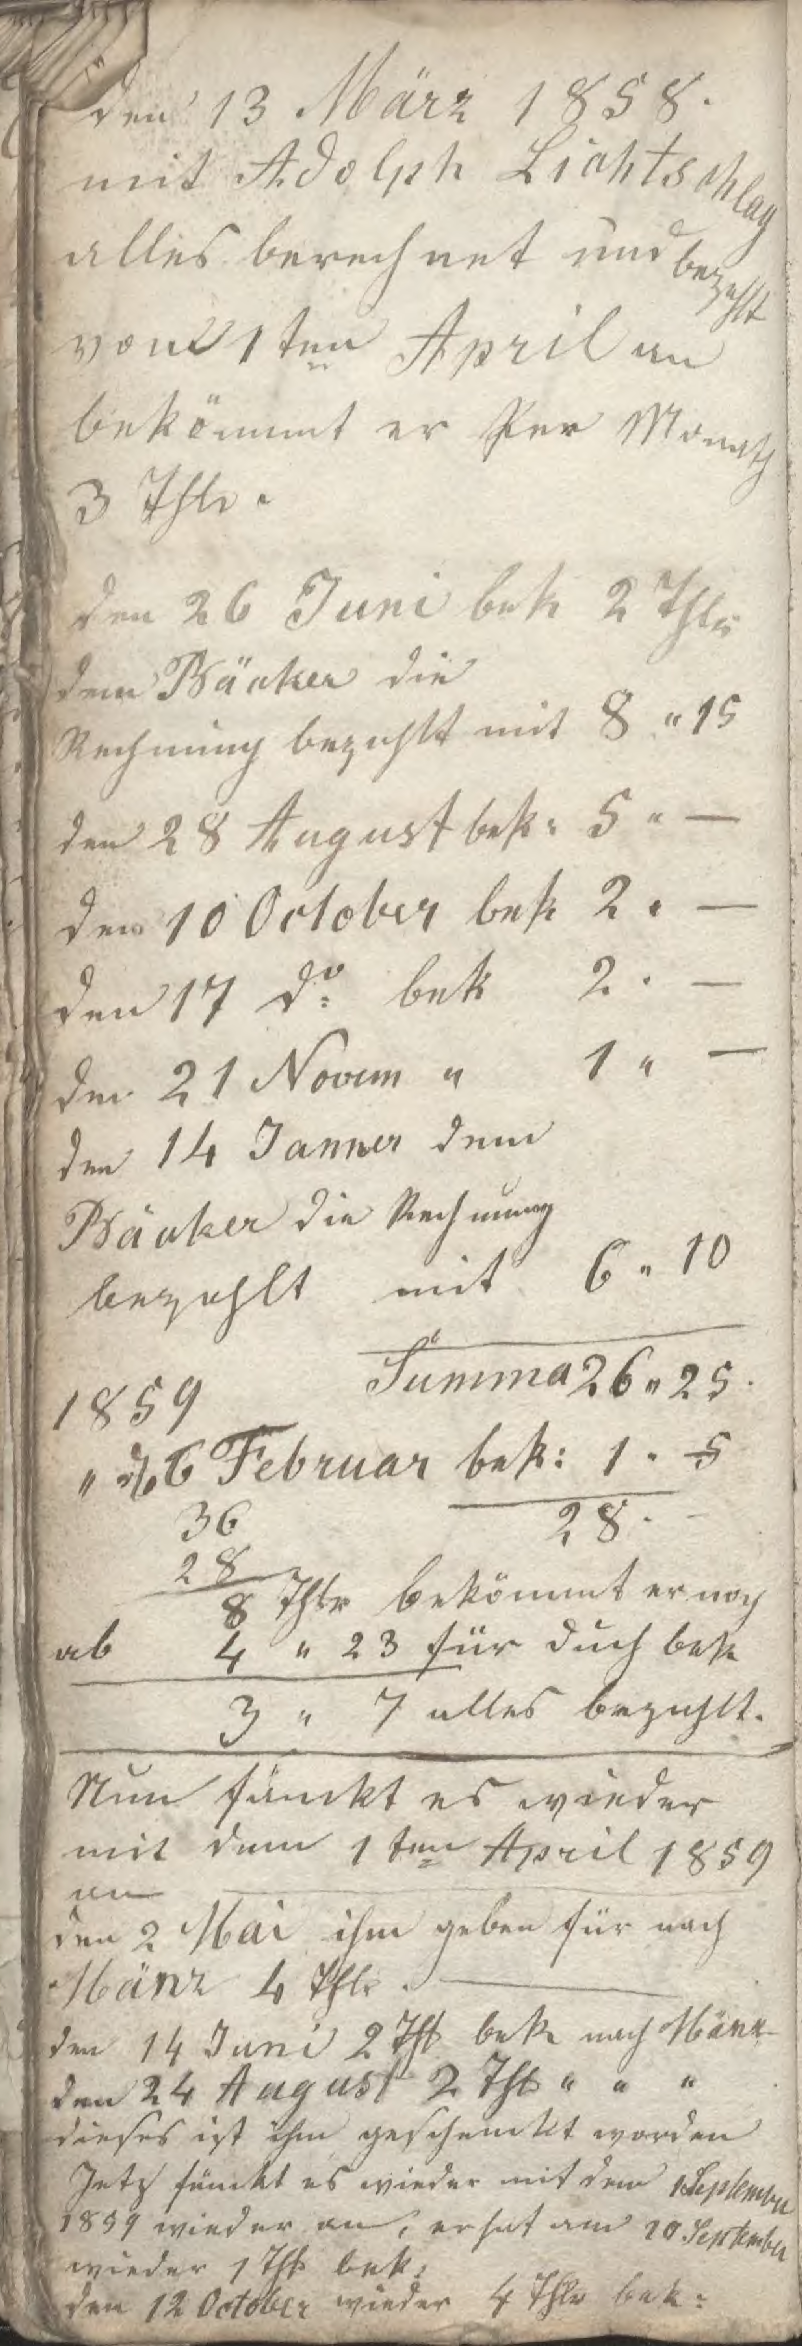 den 13 März 1858.
mit Adolph Lichtschlag
alles berechnet und bezahlt
vom 1ten April an
bekömmt er Per Monath
3 Thlr.
den 26 Juni bek 2 Thlr
dem Bäcker die
Rechnung bezahlt mit 8 " 15
den 28 August bek: 5 " —
den 10 October bek 2 " —
den 17 do: bek 2 . —
den 21 Novem " 1 " —
den 14 Janner dem
Bäcker die Rechnung
bezahlt mit 6 " 10
Summa 26 " 25.
1859
" d 6 Februar bek: 1 . 5
36 28 . —
28
8 Thlr bekömmt er noch
ab 4 " 23 für duch bek
3 " 7 alles bezahlt.
Nun fänckt es wieder
mit dem 1ten April 1859
an
den 2 Mai ihm geben für nach
Mänz 4 Thlr.
den 14 Juni 2 Thl bek nach Mänz
den 24 August 2 Thl " " "
dieses ist ihm geschenckt worden
Jetz fänckt es wieder mit dem 1 September
1859 wieder an, er hat am 20 September
wieder 1 Thl bek:
den 12 October wieder 4 Thlr bek: